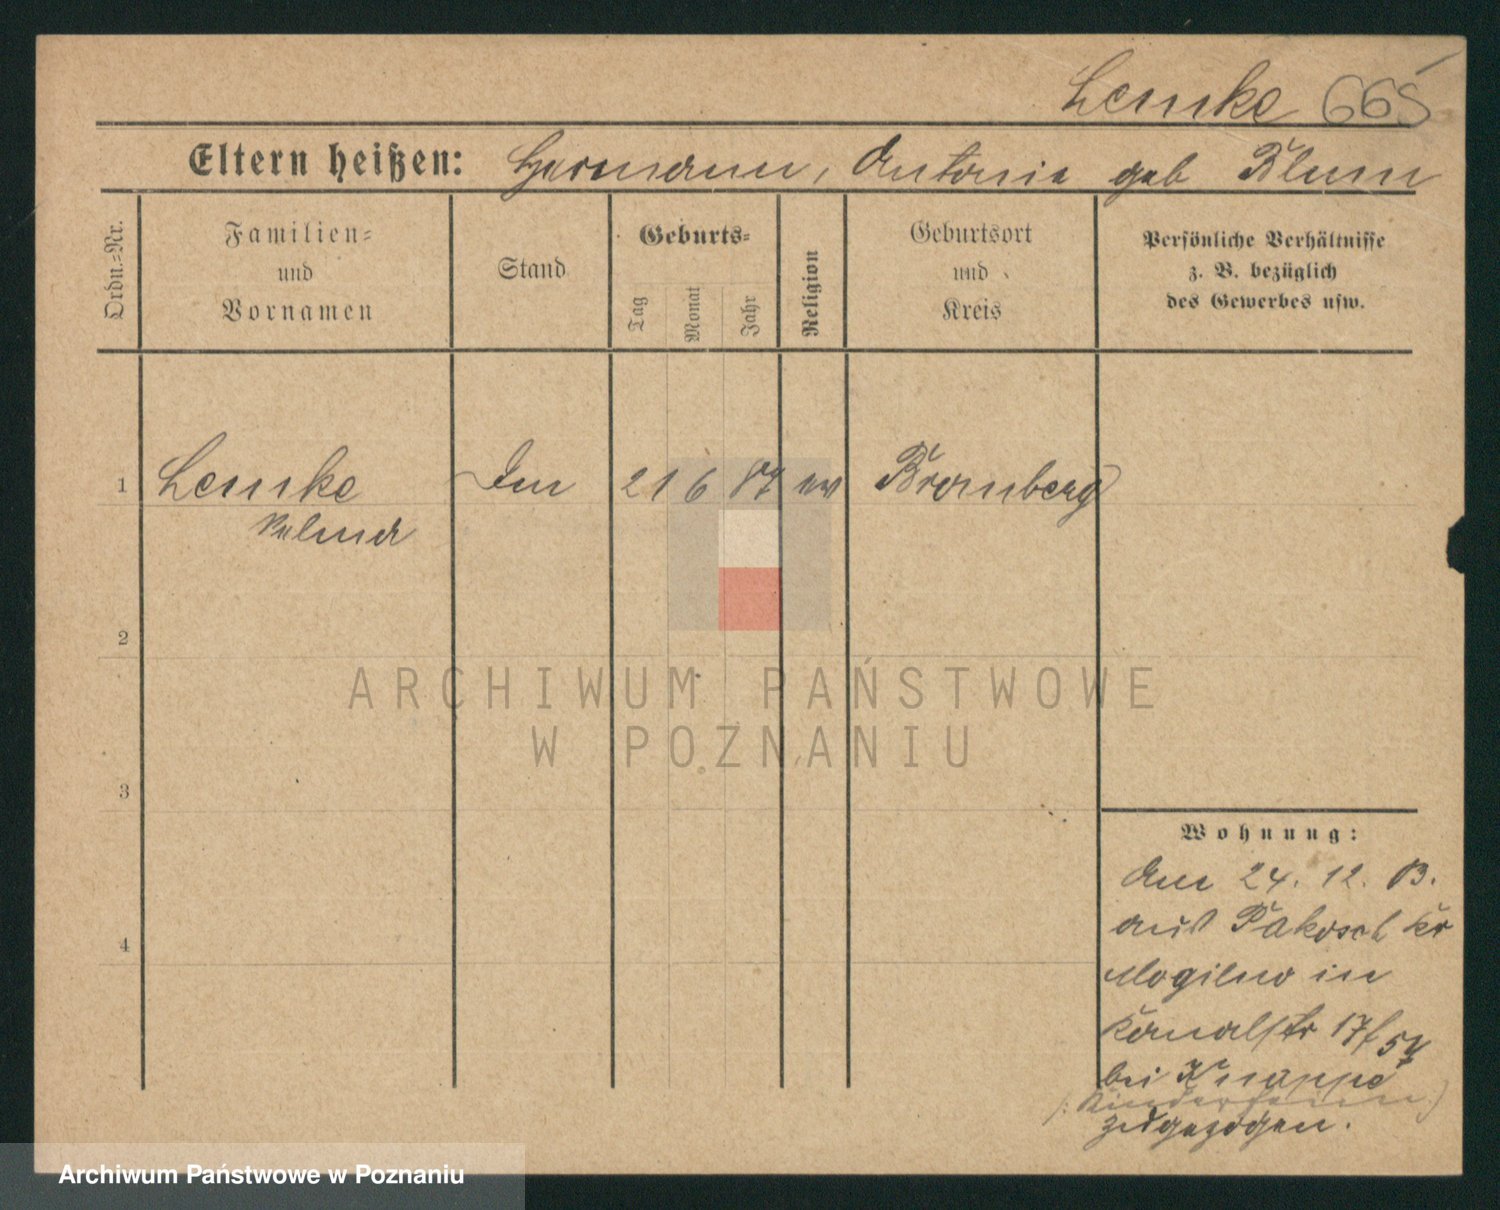 Lemke 665
Eltern heißen: Hermann, Antonie geb Blum
Ordn.=Nr.
Familien=
und
Vornamen
Stand
Geburts=
Tag
Monat
Jahr
Religion
Geburtsort
und
Kreis
Persönliche Verhältnisse
z. B. bezüglich
des Gewerbes usw.
1 Lemke 21 6 87 ev Bromberg
2
3
4
Wohnung:
Am 24. 12. 13.
aus Pakosch Kr
Mogilno in
Kanalstr 17/57
bei Knappe
zugezogen.
ARCHIWUM PAŃSTWOWE
W POZNANIU
Archiwum Państwowe w Poznaniu